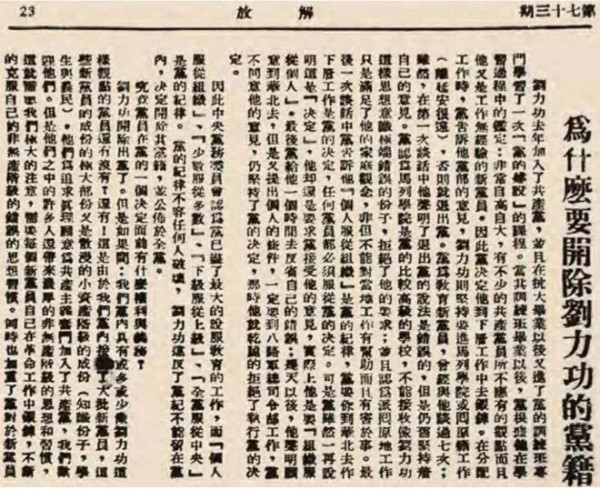 第七十三期
解放
23
為什麼要開除劉力功的黨籍
劉力功去年加入了共產黨,並且在抗大畢業以後又進了黨的訓練班專
門學習了一次「黨的建設」的課程。當其訓練班畢業以後,黨根據他在學
習過程中的鑑定:非常自高自大,有不少的共產黨員所不應有的觀點而且
他又是工作無經驗的新黨員。因此黨決定他到下層工作中去鍛鍊,在分配
工作時,黨告訴他黨部的意見,劉力功則堅持要進馬列學院或回原籍工作
(離延安很遠),否則就退出黨。黨為教育新黨員,曾經與他談過七次;
雖然,在第一次談話中他聲明了退出黨的說法是錯誤的,但是仍舊堅持着
自己的意見。黨認為馬列學院是黨的比較高級的學校,不能接收像劉力功
這樣思想意識極端錯誤的份子,拒絕了他的要求;並且認為派回原地工作
只是滿足了他的家鄉觀念,非但不能對當地工作有幫助而且有害於事。最
後一次談話中黨告訴他「個人服從組織」是黨的紀律,黨要你到華北去作
下層工作是黨的決定,任何黨員都必須服從黨的決定。可是黨雖然一再說
明這是「決定」,他却還是要求黨接受他的意見,實際上他是要「組織服
從個人」。最後黨給他一個時間去反省自己的錯誤;幾天以後,他聲明願
意到華北去,但是又提出個人的條件,一定要到八路軍總司令部工作,黨
不同意他的意見,仍堅持了黨的決定,那時他就乾脆的拒絕了執行黨的決
定。
因此中央黨務委員會認為黨已盡了最大的說服教育的工作,而「個人
服從組織」、「少數服從多數」、「下級服從上級」、「全黨服從中央」
是黨的紀律。黨的紀律不容任何人破壞,劉力功違反了黨紀不能留在黨
內,決定開除其黨籍,並公佈於全黨。
究竟黨員在黨的一個決定面前有什麼權利與義務?
劉力功開除出黨了。但是如果問:我們黨內具有或多或少像劉力功這
樣觀點的黨員還有沒有?還有!這是由於我們黨內接收了大批新黨員,這
些新黨員的成份的極大部份又是散漫的小資產階級的成份(知識份子,學
生與農民),他們為追求真理願意為共產主義奮鬥加入了共產黨,我們歡
迎他們。但是他們之中的許多人還帶來濃厚的非無產階級的思想和習慣,
這就需要我們極大的注意,需要每個新黨員自己在革命工作中鍛鍊,不斷
的克服自己的非無產階級的錯誤的思想習慣。同時也加重了黨對於新黨員